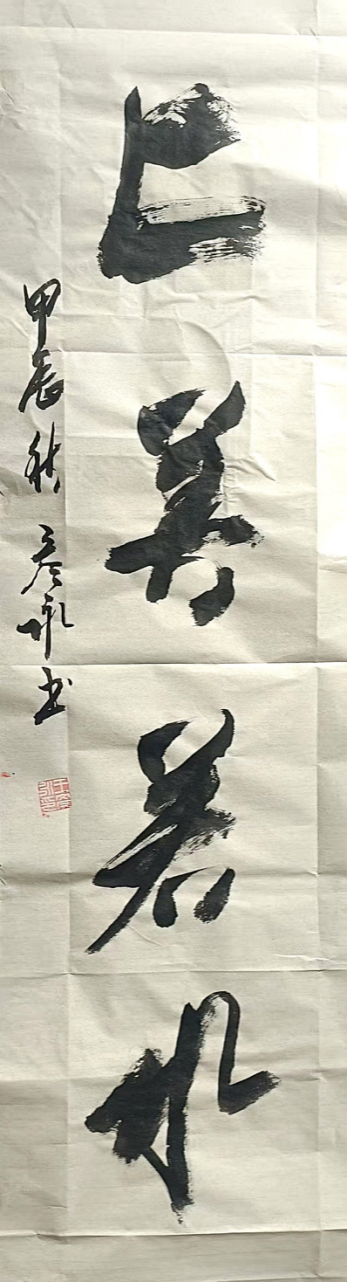 上善若水
甲辰秋彦泉书